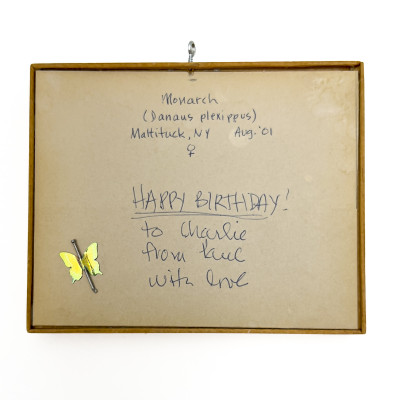 Monarch
(Danaus plexippus)
Mattituck, NY Aug. '01
♀
HAPPY BIRTHDAY!
to Charlie
from Paul
with love